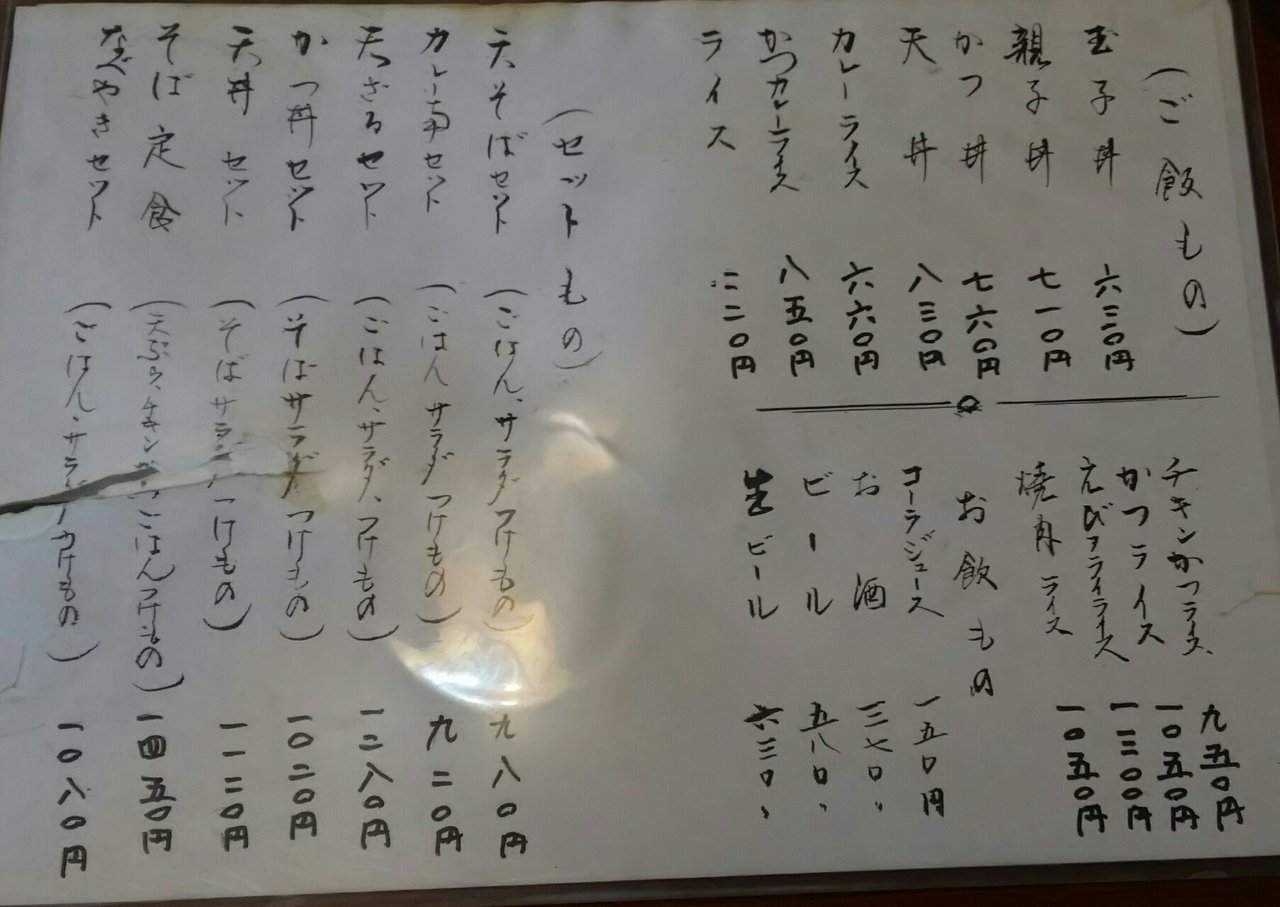 (ご飯もの)
玉子丼 六三〇円
親子丼 七一〇円
かつ丼 七六〇円
天丼 八三〇円
カレーライス 六六〇円
かつカレーライス 八五〇円
ライス 二二〇円
チキンかつライス 九五〇円
かつライス 一〇五〇円
えびフライライス 一三〇〇円
焼肉ライス 一〇五〇円
お飲もの
コーラジュース 一五〇円
お酒 三七〇、
ビール 五八〇、
生ビール 六三〇、
(セットもの)
天そばセット (ごはん、サラダつけもの) 九八〇円
カレー南セット (ごはんサラダつけもの) 九二〇円
天ざるセット (ごはん、サラダ、つけもの) 一二八〇円
かつ丼セット (そばサラダつけもの) 一〇二〇円
天丼セット (そばサラダつけもの) 一一二〇円
そば定食 (天ぷら、チキンかつごはんつけもの) 一四五〇円
なべやきセット (ごはん、サラダつけもの) 一〇八〇円